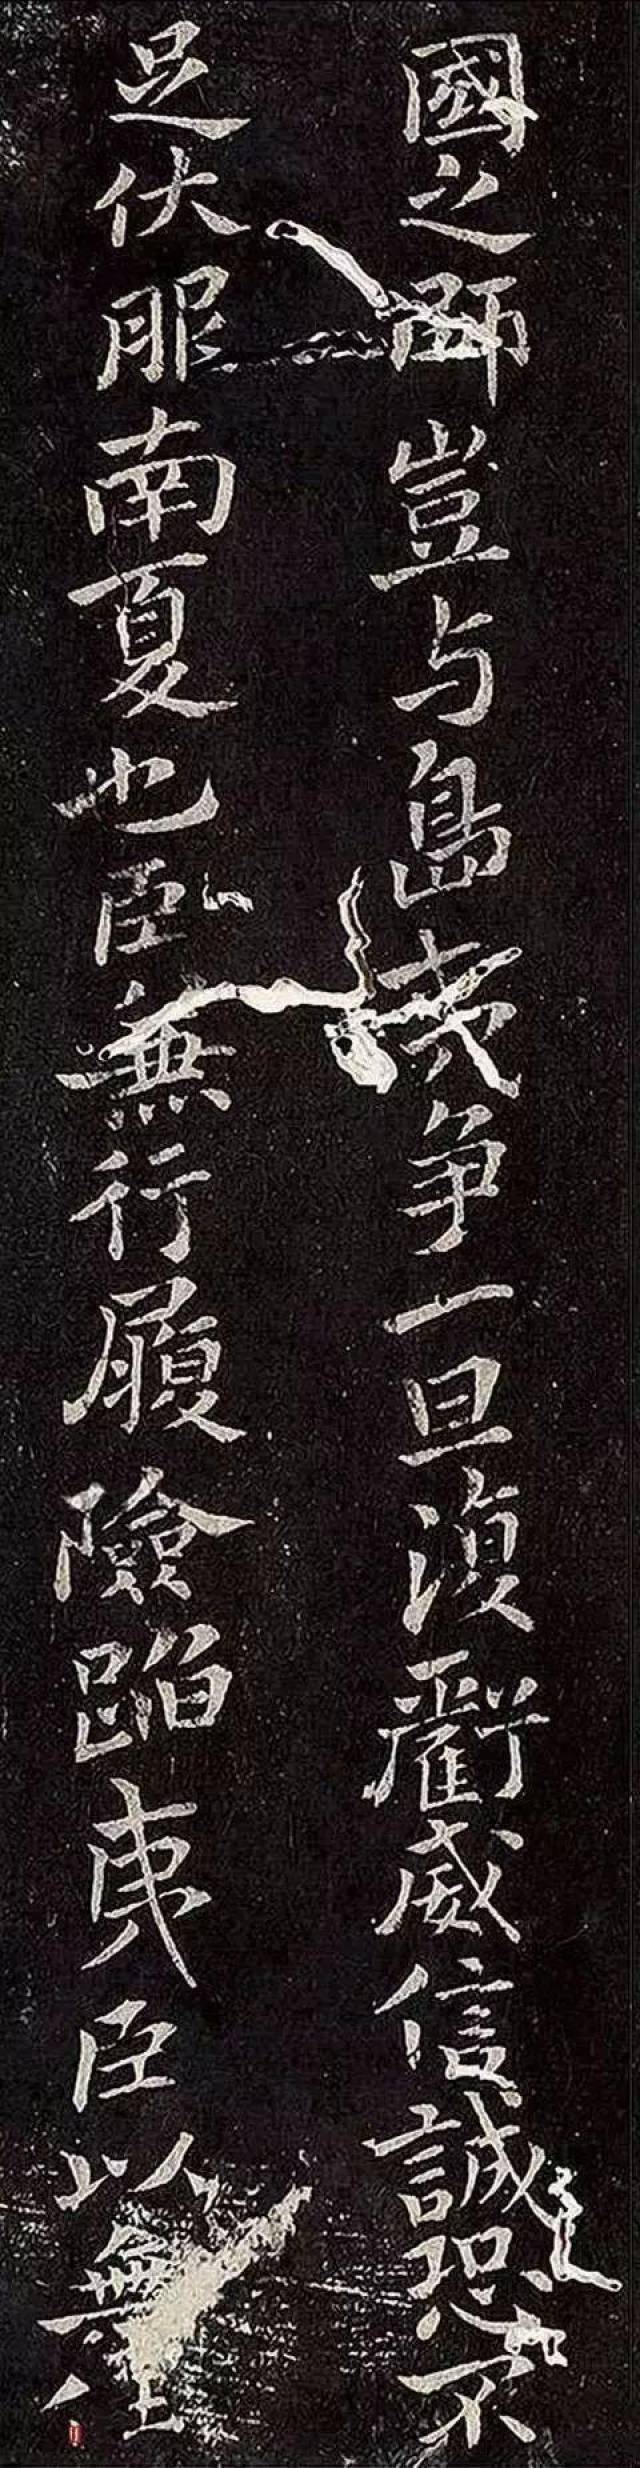 國之師豈与島夷争一旦復虧威信誠恐不
足伏服南夏也臣無行履險蹈夷臣以無任